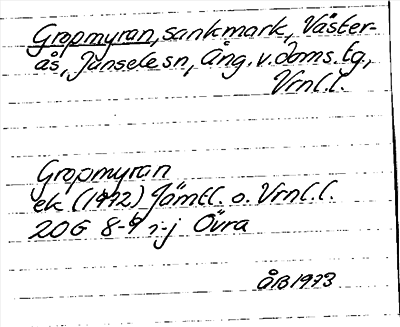 Gropmyran, sankmark, Väster-
ås, Junsele sn, Ång. v. doms. tg.,
Vrnl.l.
Gropmyran
ek (1972) Jämtl. o. Vrnl.l.
20G 8-9 i-j Övra
ÅB 1973